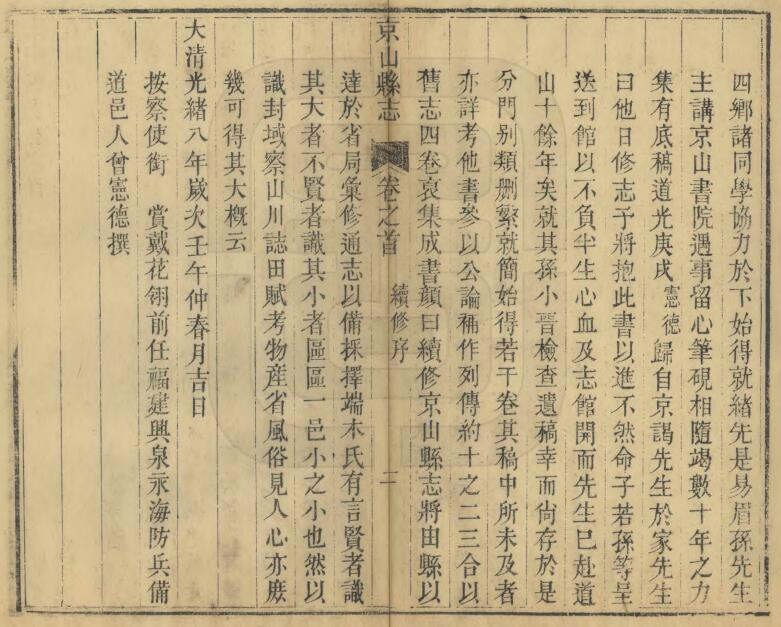 四鄉諸同學協力於下始得就緒先是易眉孫先生
主講京山書院遇事留心筆硯相隨竭數十年之力
集有底稿道光庚戌憲德歸自京謁先生於家先生
曰他日修志予將抱此書以進不然命子若孫等呈
送到館以不負半生心血及志館開而先生已赴道
山十餘年矣就其孫小晋檢查遺稿幸而尙存於是
分門别類刪繁就簡始得若干卷其稿中所未及者
亦詳考他書參以公論稱作列傳約十之二三合以
舊志四卷裒集成書顏曰續修京山縣志將由縣以
京山縣志 卷之首 續修序 二
達於省局彙修通志以備採擇端木氏有言賢者識
其大者不賢者識其小者區區一邑小之小也然以
識封域察山川誌田賦考物産省風俗見人心亦庶
幾可得其大概云
大清光緒八年歲次壬午仲春月吉日
按察使銜 賞戴花翎前任福建興泉永海防兵備
道邑人曾憲德撰